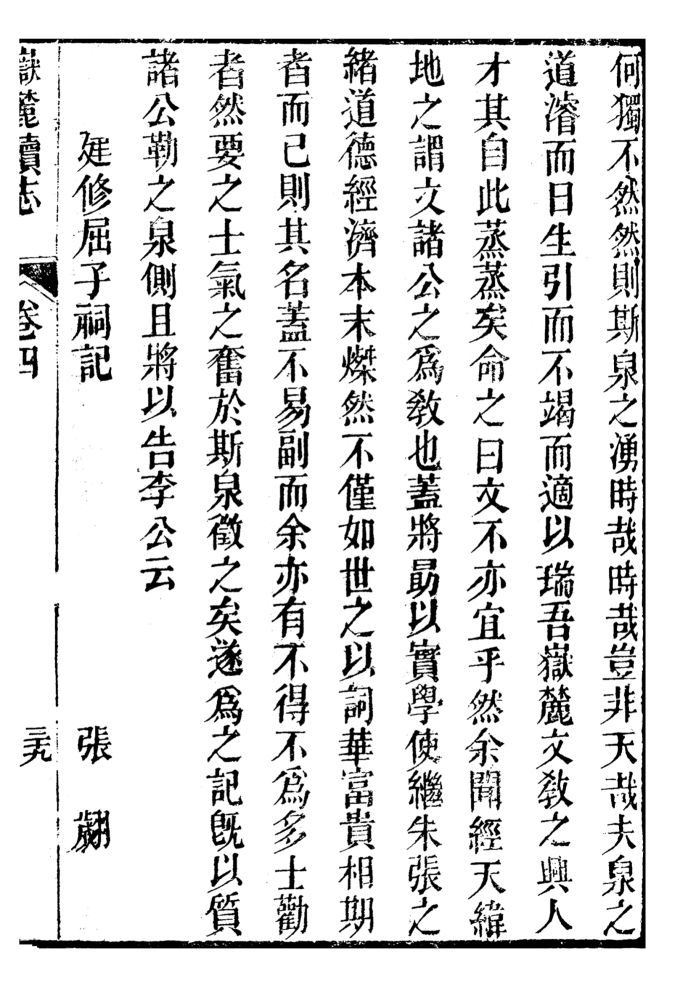 何獨不然然則斯泉之湧時哉時哉豈非天哉夫泉之
道濬而日生引而不竭而適以瑞吾嶽麓文敎之興人
才其自此蒸蒸矣命之曰文不亦宜乎然余聞經天緯
地之謂文諸公之爲敎也蓋將勗以實學使繼朱張之
緒道德經濟本末燦然不僅如世之以詞華富貴相期
者而已則其名蓋不易副而余亦有不得不爲多士勸
者然要之士氣之奮於斯泉徵之矣遂爲之記旣以質
諸公勒之泉側且將以告李公云
廷修屈子祠記 張翽
嶽麓續志 卷四 三九